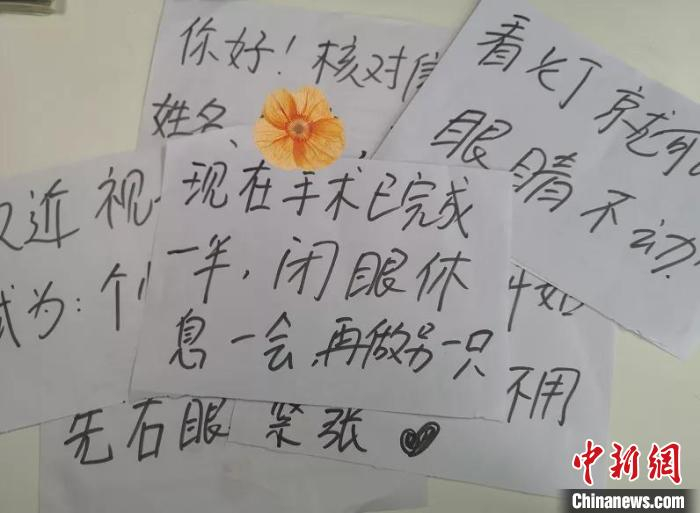 你好！核对信
姓名、
看灯就可
眼睛不动
近视
试为：个
现在手术已完成
一半，闭眼休
息一会，再做另一只
先右眼
不用
紧张
中新网
Chinanews.com